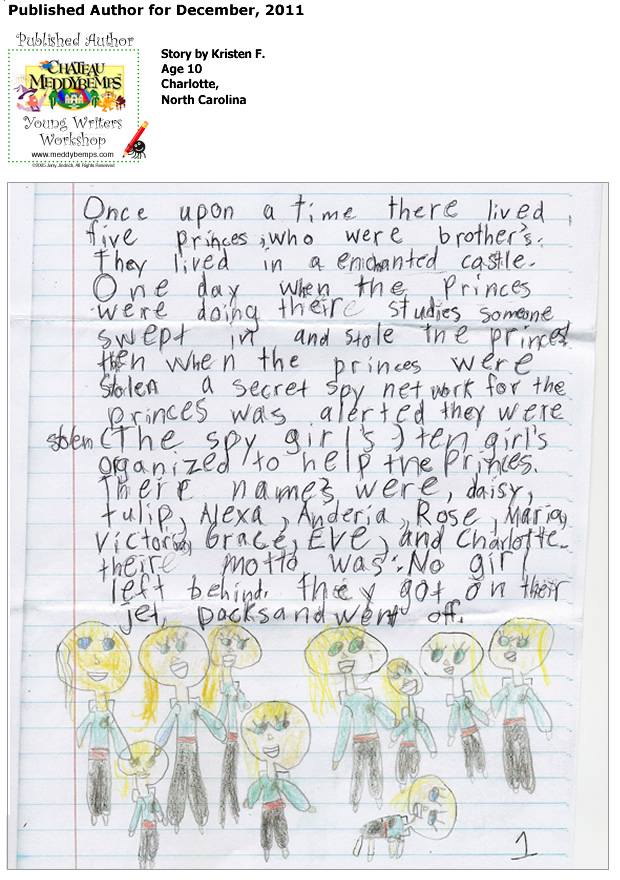 Published Author for December, 2011
Published Author
CHATEAU
MEDDYBEMPS
Young Writers
Workshop
www.meddybemps.com
©2005 Jerry Jindrich, All Rights Reserved
Story by Kristen F.
Age 10
Charlotte,
North Carolina
Once upon a time there lived
five princes, who were brother's.
They lived in a enchanted castle.
One day when the Princes
were doing theire studies someone
swept in and stole the princes
then when the princes were
stolen a secret spy net work for the
princes was alerted they were
stolen (The spy girl's) ten girl's
organized to help the Princes.
There names were, daisy,
tulip, Alexa, Anderia, Rose, Maria,
Victoria, Grace, EVE, and Charlotte.
theire motto was: No girl
left behind. they got on their
jet packs and went off.
1